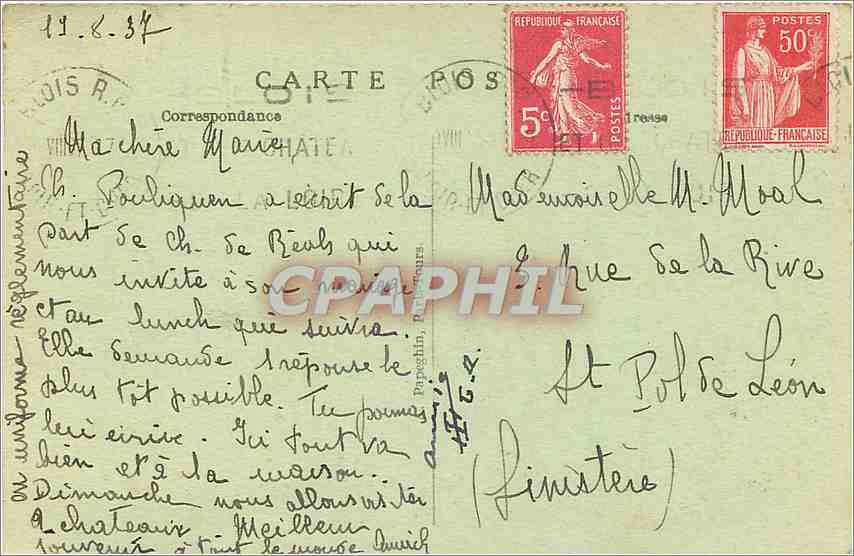 19.8.37
CARTE POS
Correspondance
BLOIS R.P.
REPUBLIQUE FRANÇAISE
5c
POSTES
POSTES
50c
REPUBLIQUE FRANÇAISE
Ma chère Marie
Ch. Pouliquen a écrit de la
part de Ch. de Réals qui
nous invite à son mariage
et au lunch qui suivra.
Elle demande 1 réponse le
plus tôt possible. Tu pourras
lui écrire. Ici tout va
bien et à la maison..
Dimanche nous allons visiter
2 chateaux Meilleur
souvenir à tout le monde
en uniforme réglementaire
Papeghin, Paris-Tours.
Mademoiselle M. Moal
Rue de la Rive
St Pol de Léon
(Finistère)
CPAPHIL